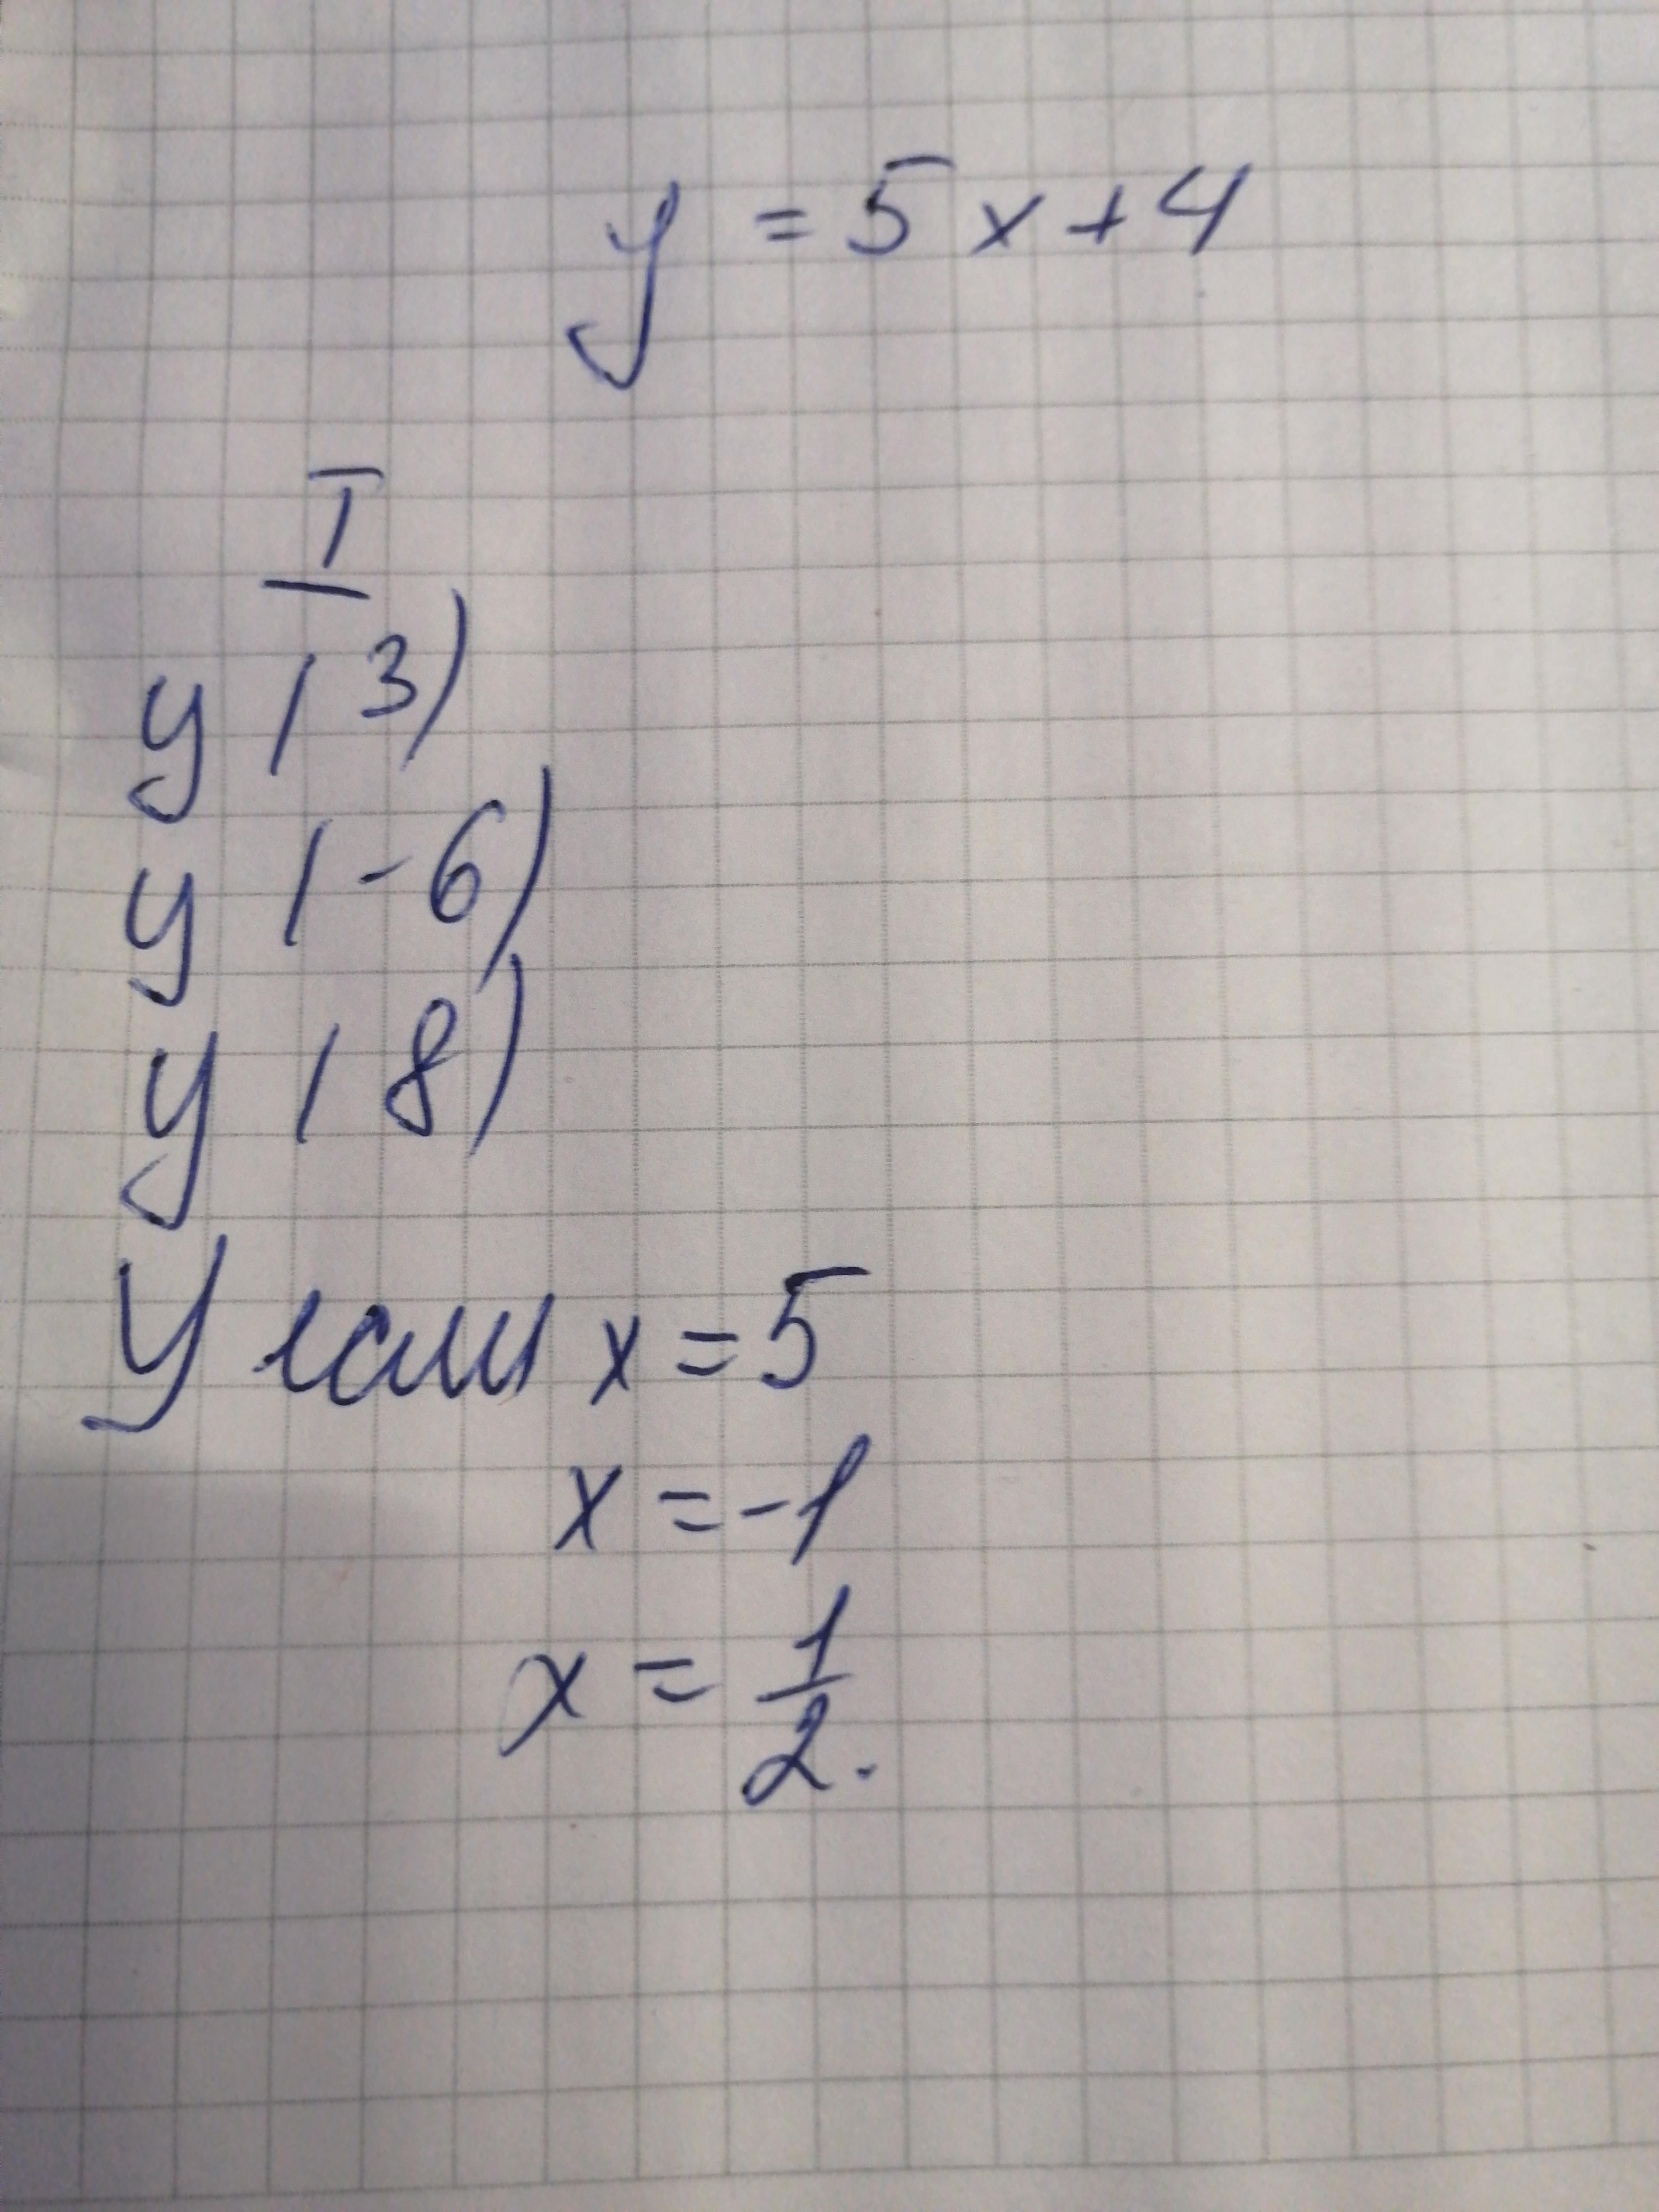 y = 5x+4
I
y (3)
y (-6)
y (8)
y если x = 5
x = -1
x = 1/2.